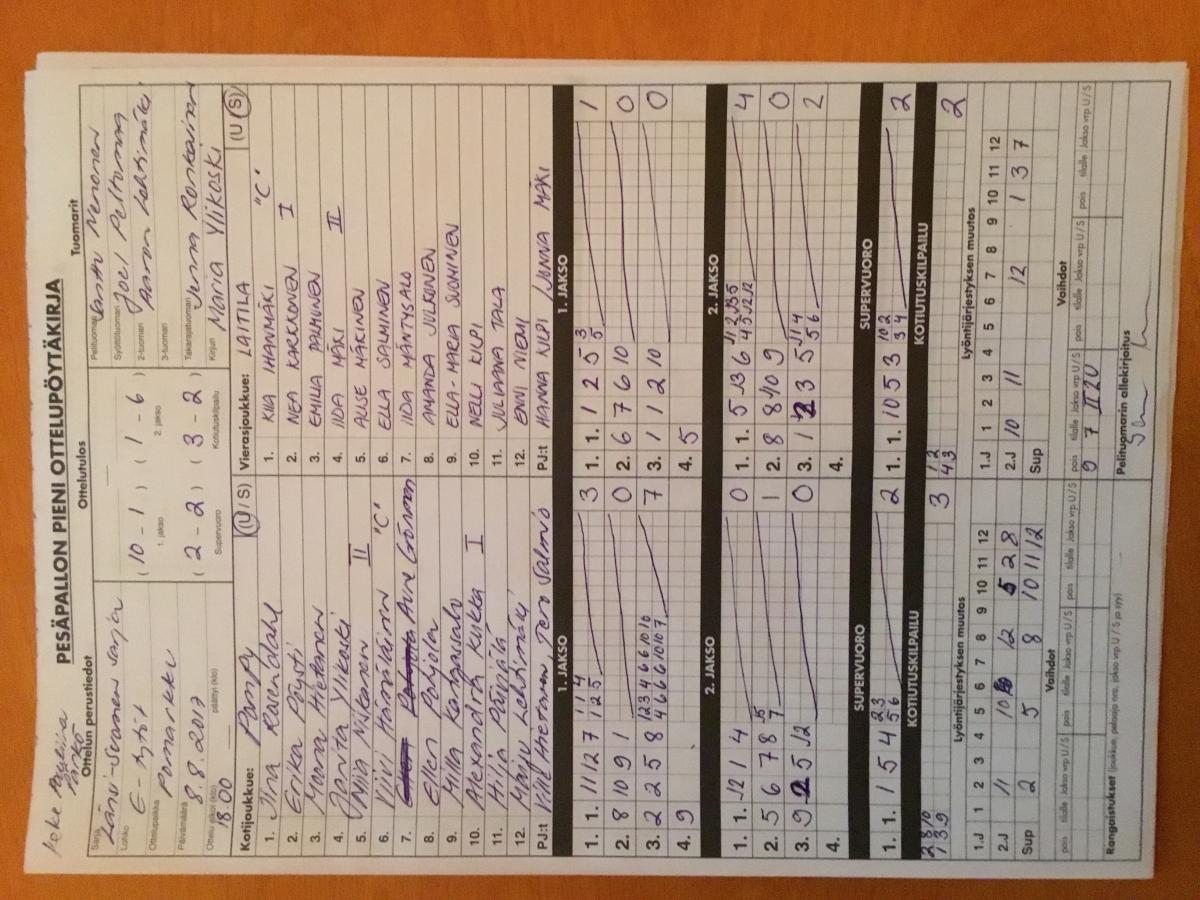 PESÄPALLON PIENI OTTELUPÖYTÄKIRJA
Ottelun perustiedot
Sarja Länsi-Suomen sarja
Lohko E-tytöt
Ottelupaikka Pomarkku
Päivämäärä 8.8.2017
Ottelu alkoi (klo) 18.00 päättyi (klo)
Ottelutulos
( 10 - 1 ) ( 1 - 6 )
1. jakso 2. jakso
( 2 - 2 ) ( 3 - 2 )
Supervuoro Kotiutuskilpailu
Tuomarit
Pelituomari Nenonen
Syöttötuomari Joel Peltomaa
2-tuomari Aaron Lehtimäki
3-tuomari
Takarajatuomari Jenna Ronkainen
Kirjuri Maria Ylikoski
Kotijoukkue: Pompy (U / S)
1. Ina Rosendahl
2. Erika Pöysti
3. Moona Hietanen
4. Janita Ylikoski
5. Niia Niskanen II
6. Viivi Hämäläinen "C"
7. Aura Görman
8. Ellen Pohjola
9. Milla Kangassalo
10. Alexandra Kukka I
11. Hilja Päivölä
12. Maiju Lehtimäki
PJ:t Ville Hietanen Tero Salmio
Vierasjoukkue: LAITILA (U / S)
1. KIIA IHANMÄKI "C"
2. NEA KARKKONEN I
3. EMILIA PANHUNEN
4. IIDA MÄKI II
5. AUSE MÄKINEN
6. ELLA SALMINEN
7. IIDA MÄNTYSALO
8. AMANDA JULKUNEN
9. ELLA-MARIA SUOMINEN
10. NELLI KILPI
11. JULIAANA TALA
12. ENNI NIEMI
PJ:t HANNA KILPI / JONNA MÄKI
1. JAKSO
1. 1. 11 12 7 1 1 4 1 2 5 3
2. 8 10 9 1 0
3. 2 5 8 7
4. 9
1. JAKSO
1. 1. 1 2 5 3 5 1
2. 6 7 6 10 0
3. 1 1 2 10 0
4. 5
2. JAKSO
1. 1. 12 1 4 0
2. 5 6 7 8 1
3. 9 5 12 0
4.
2. JAKSO
1. 1. 5 6 4
2. 8 10 9 0
3. 1 3 5 2
4.
SUPERVUORO
1. 1. 1 5 4 2 3 5 6 2
SUPERVUORO
1. 1. 10 5 3 10 2 3 4 2
KOTIUTUSKILPAILU
2 8 10
1 3 9 3
KOTIUTUSKILPAILU
1 2
4 3 2
Lyöntijärjestyksen muutos
1 2 3 4 5 6 7 8 9 10 11 12
1.J
2.J 11 10 12 5 2 8
Sup 2 5 8 10 11 12
Lyöntijärjestyksen muutos
1 2 3 4 5 6 7 8 9 10 11 12
1.J
2.J 10 11 12 1 3 7
Sup
Vaihdot
pois tilalle Jakso vrp U / S pois tilalle Jakso vrp U / S pois tilalle Jakso vrp U / S
Vaihdot
pois tilalle Jakso vrp U / S pois tilalle Jakso vrp U / S pois tilalle Jakso vrp U / S
9 7 II 2U
Rangaistukset (joukkue, pelaaja nro, jakso vrp U / S ja syy)
Pelituomarin allekirjoitus